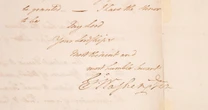 to granted. — I have the Honor
to be
My Lord
Your Lordship's
most Obedient and
most humble Servant